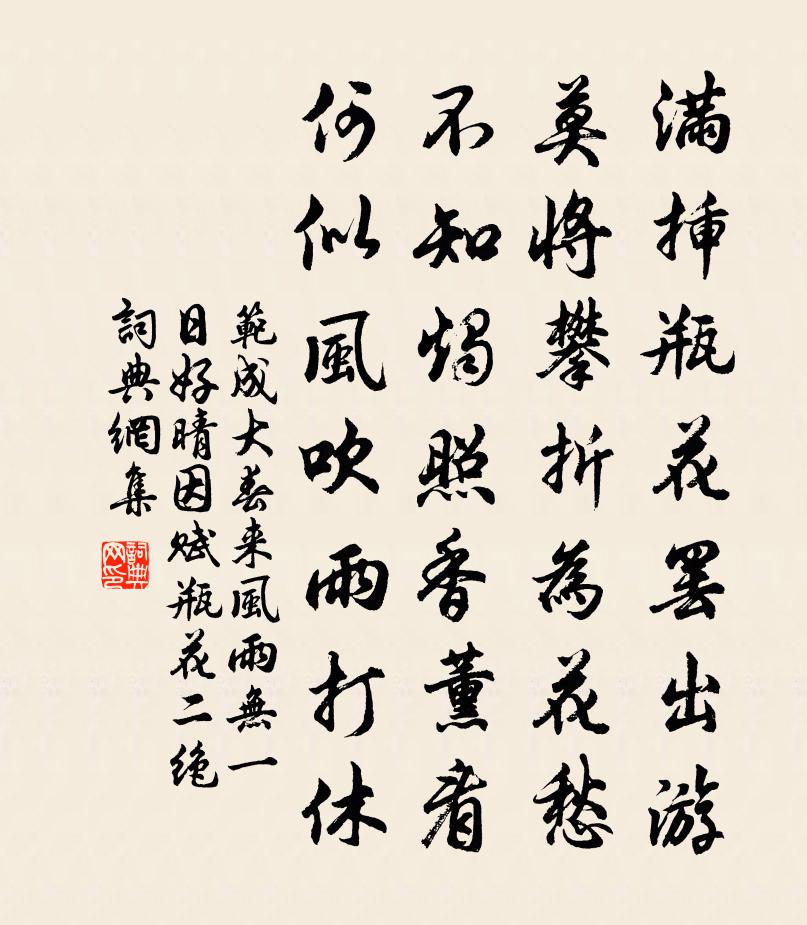 滿挿瓶花罷出游
莫將攀折為花愁
不知燭照香薰看
何似風吹雨打休
範成大春来風雨無一
日好晴因赋瓶花二绝
詞典網集
詞典网印